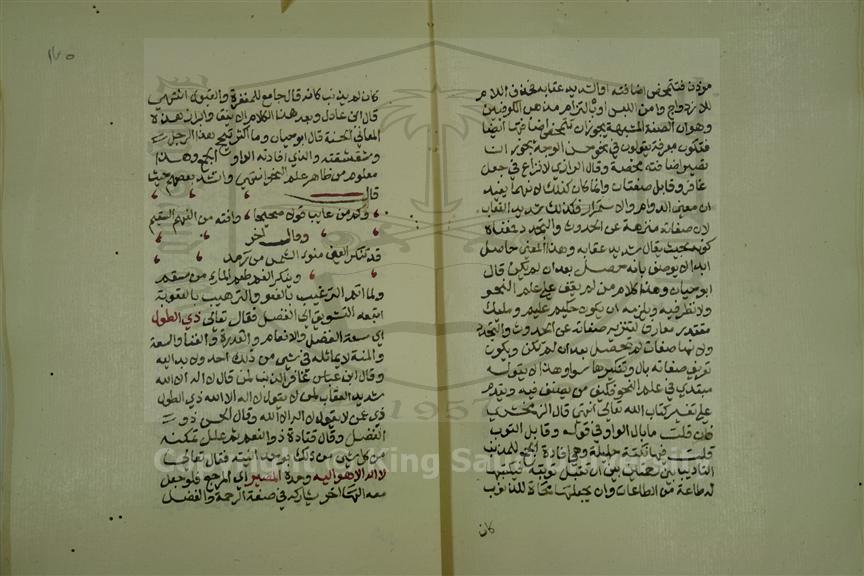 موذن فتتمحض اضافته او الشديد عقابه فحذف اللام
للازدواج وامن اللبس او بالتزام مذهب الكوفيين
وهو ان الصفة المشبهة يجوز ان تتمحض اضافتها ايضا
فتكون معرفة يقولون في نحو حسن الوجه يجوز ان
تصير اضافته محضة وقال الرازي لا نزاع في جعل
غافر وقابل صفتان وانما كان كذلك لانهما يفيد
ان معنى الدوام والاستمرار فكذلك شديد العقاب
لان صفاته منزهة عن الحدوث والتجدد فمعناه
كونه بحيث يقال شديد عقابه وهذا المعنى حاصل
ابدا لا يوصف بانه حصل بعد ان لم يكن قال
ابو حيان وهذا كلام من لم يقف على علم النحو
ولا نظر فيه ويلزمه ان يكون حكيم عليم ومليك
مقتدر معارف لتنزيه صفاته عن الحدوث والتجدد
ولانها صفات لم تحصل بعد ان لم يكن ويكون
تعريف صفاته بال وتنكيرها سواء وهذا لا يقوله
مبتدي في علم النحو فكيف من يصنف فيه ويقدم
على تفسير كتاب الله تعالى انتهى قال الزمخشري
فان قلت ما بال الواو في قوله وقابل التوب
قلت فيها نكتة جليلة وهي افادة الجمع للمذنب
التائب بين رحمتين بين ان تقبل توبته فيكتبها
له طاعة من الطاعات وان يجعلها محاة للذنوب
كان
١٢٥
كان لم يذنب كانه قال جامع للمغفرة والقبول انتهى
قال ابن عادل وبعد هذا الكلام الانيق وابراز هذه
المعاني الحسنة قال ابو حيان وما اكثر تبجح هذا الرجل
وشقشقته والذي افادته الواو الجمع وهذا
معلوم من ظاهر علم النحو انتهى وانشد بعضهم
قال
وكم من عايب قولا صحيحا وافته من الفهم السقيم
وقال اخر
قد تنكر العين ضوء الشمس من رمد
وينكر الفم طعم الماء من سقم
ولما اتم الترغيب بالعفو والترهيب بالعقوبة
اتبعه التشويق الى الفضل فقال تعالى ذي الطول
اي سعة الفضل والانعام والقدرة والغنا والسعة
والمنة لا يماثله في شي من ذلك احد ولا يدانيه
وقال ابن عباس غافر الذنب لمن قال لا اله الا الله
شديد العقاب لمن لا يقول لا اله الا الله ذي الطول
ذي غنى عمن لا يقول لا اله الا الله وقال الحسن ذو
الفضل وقال قتادة ذو النعم ثم علل تمكنه
من كل شي من ذلك بوحدانيته فقال تعالى
لا اله الا هو اليه وحده المصير اي المرجع فلو جعل
معه الها اخر يشاركه في صفة الرحمة والفضل
1957
Copyright © King Saud University